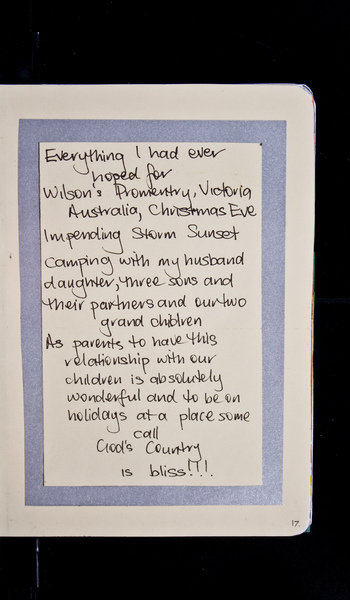 Everything I had ever
hoped for
Wilson's Promentry, Victoria
Australia, Christmas Eve
Impending Storm Sunset
camping with my husband
daughter, three sons and
their partners and our two
grand children
As parents to have this
relationship with our
children is absolutely
wonderful and to be on
holidays at a place some
call
God's Country
is bliss!!!.
17.